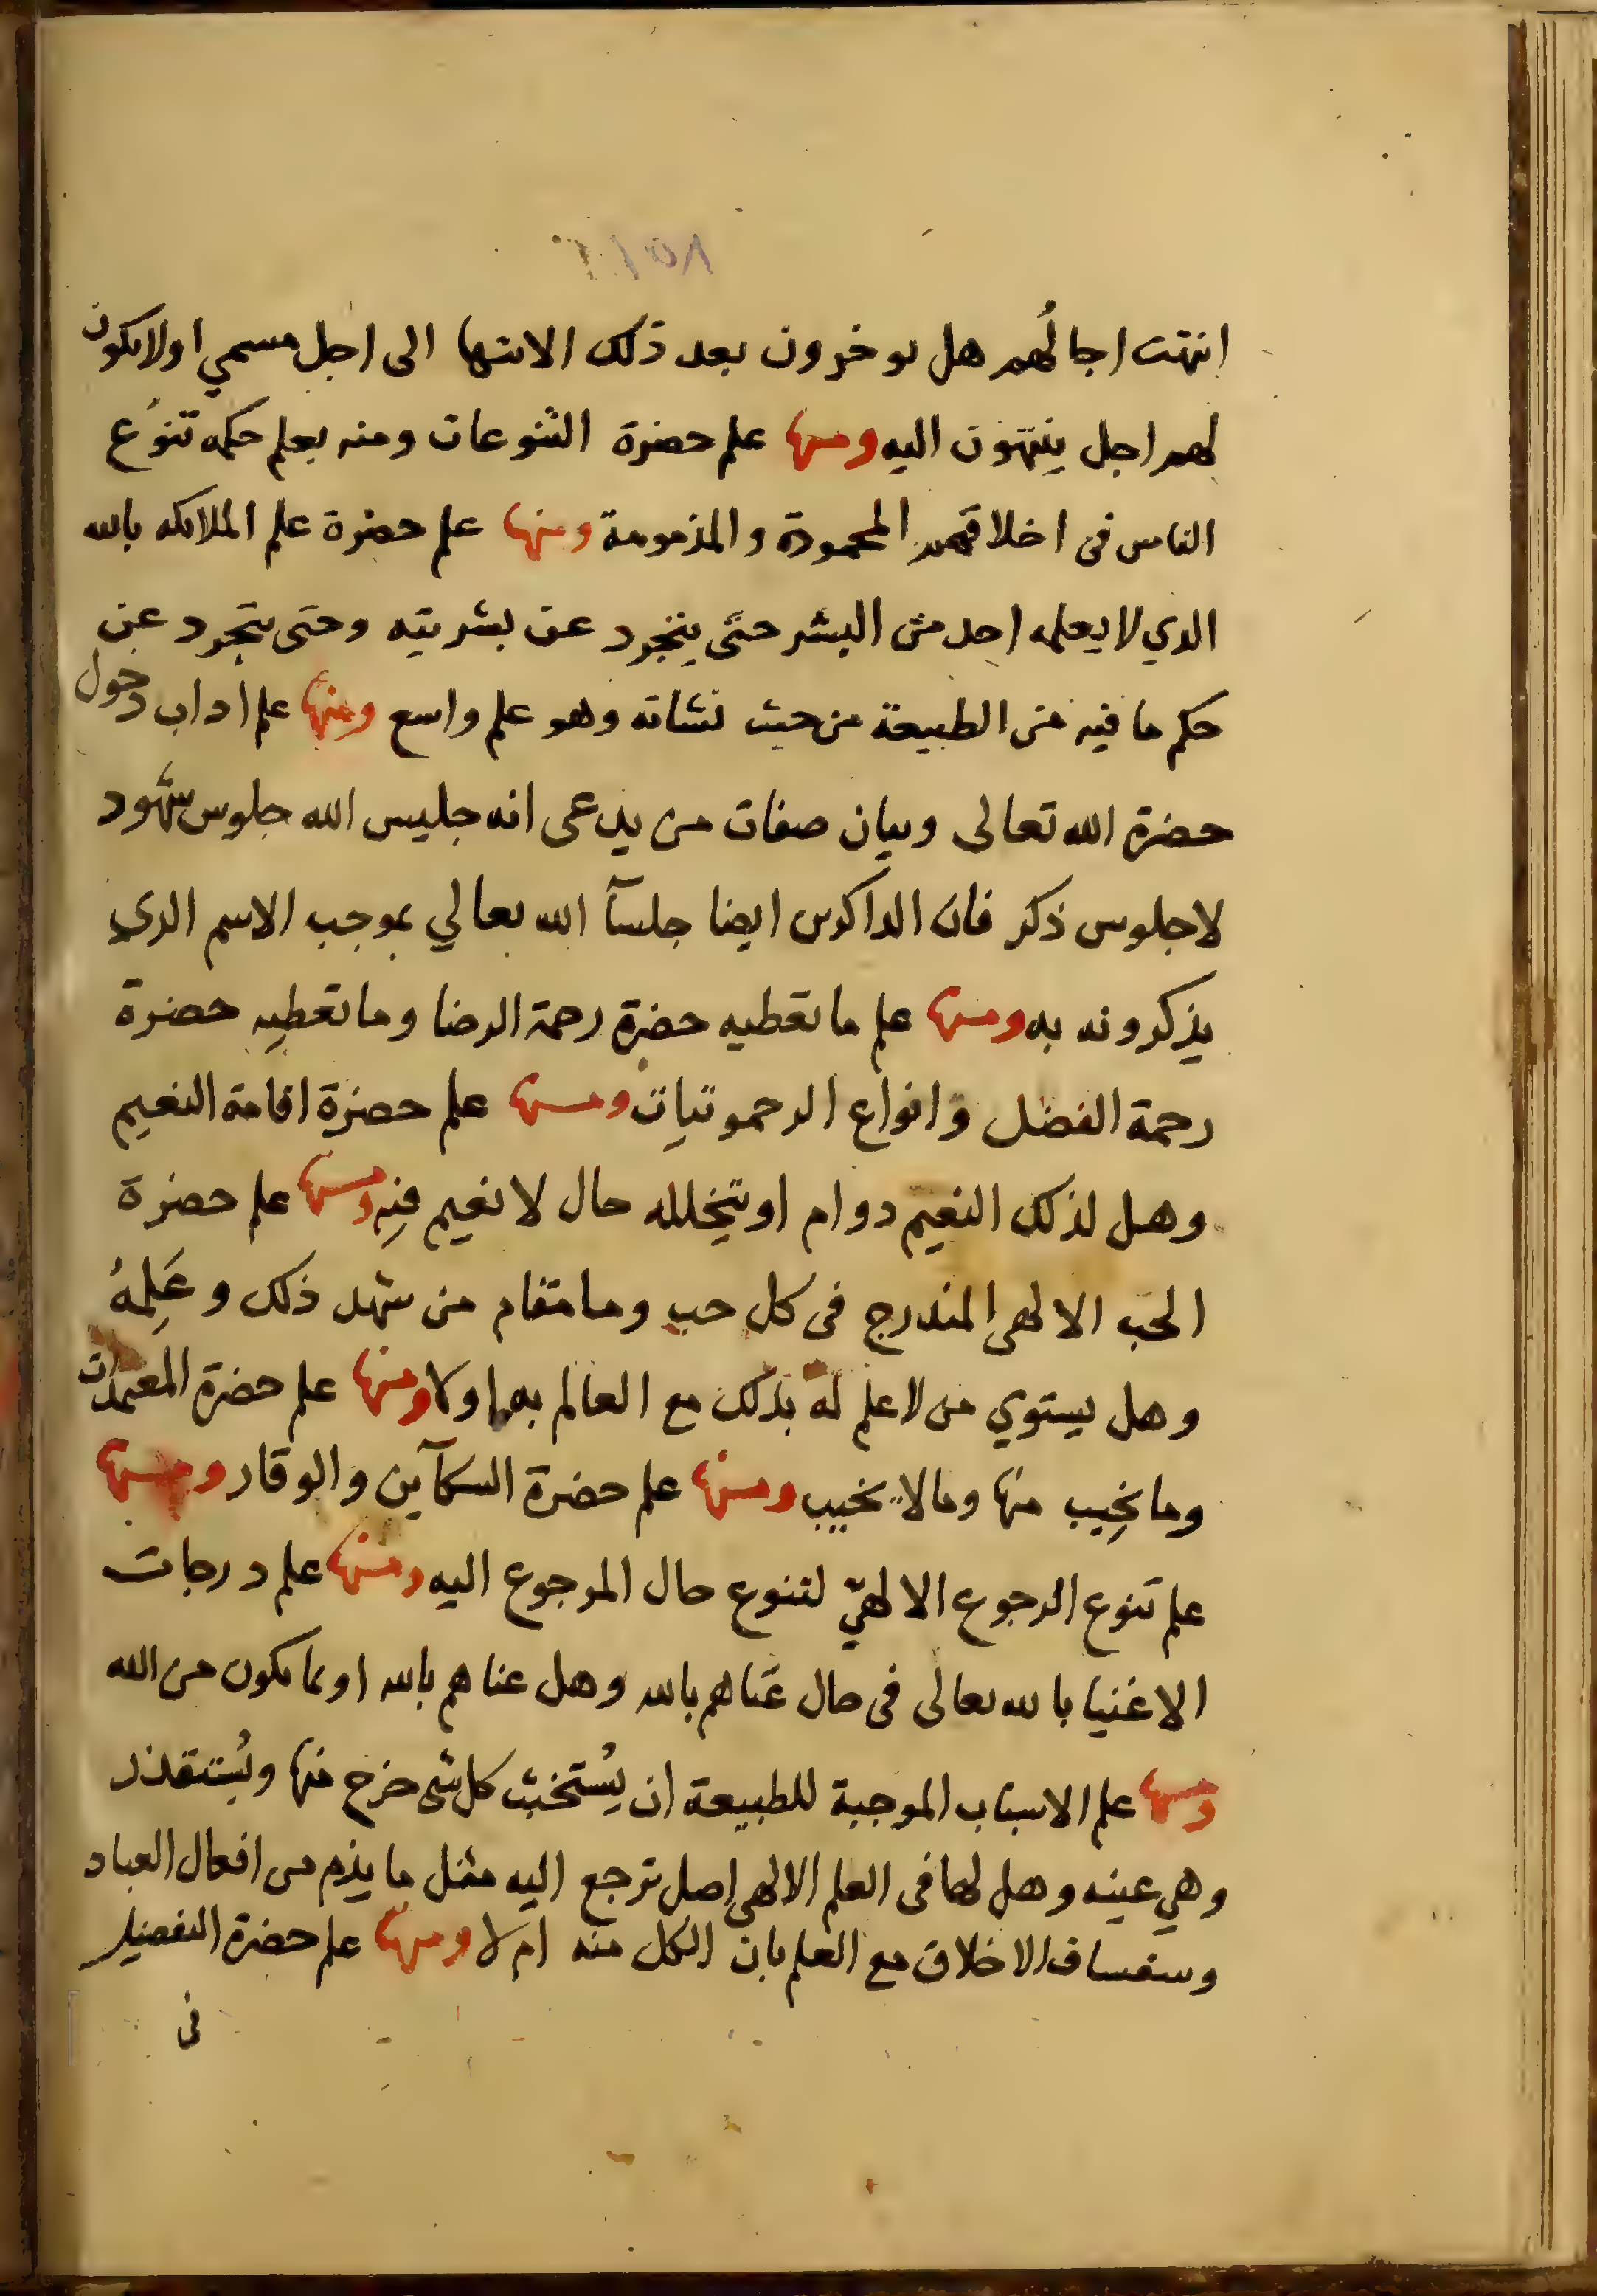 انتهت اجالُهم هل يوخرون بعد ذلك الانتها الى اجل مسمي اولايكون
لهم اجل ينتهون اليه ومنها علم حضرة التنوعات ومنه يعلم حكمه تنوُع
الناس فى اخلاقهم المحمودة والمذمومة ومنها علم حضرة علم الملائكه بالله
الذي لا يعلمه احد من البشر حتى يتجرد عن بشريته وحتى يتجرد عن
حكم ما فيه من الطبيعة من حيث نشاته وهو علم واسع ومنها علم اداب دخول
حضرة الله تعالى وبيان صفات من يدعى انه جليس الله جلوس شهود
لاجلوس ذكر فان الذاكرين ايضا جلسآ الله تعالي بموجب الاسم الذي
يذكرونه به ومنها علم ما تعطيه حضرة رحمة الرضا وما تعطيه حضرة
رحمة الفضل وانواع الرحموتيات ومنها علم حضرة اقامة النعيم
وهل لذلك النعيم دوام او يتخلله حال لا نعيم فيه ومنها علم حضرة
الحب الالهى المندرج فى كل حب وما مقام من شهد ذلك وعَلِمهُ
وهل يستوي من لا علم له بذلك مع العالم به او لا ومنها علم حضرة المعتمدات
وما يخيب منها وما لا يخيب ومنها علم حضرة السكآين والوقار ومنها
علم تنوع الرجوع الالهيّ لتنوع حال المرجوع اليه ومنها علم درجات
الاغنيا بالله تعالى فى حال غناهم بالله وهل غناهم بالله او بما يكون من الله
ومنها علم الاسباب الموجبة للطبيعة ان يُستخبث كل شى خرج منها ويُستقذر
وهي عينه وهل لها فى العلم الالهى اصل ترجع اليه مثل ما يذم من افعال العباد
وسفساف الاخلاق مع العلم بان الكل منه ام لا ومنها علم حضرة التفضيل
فى